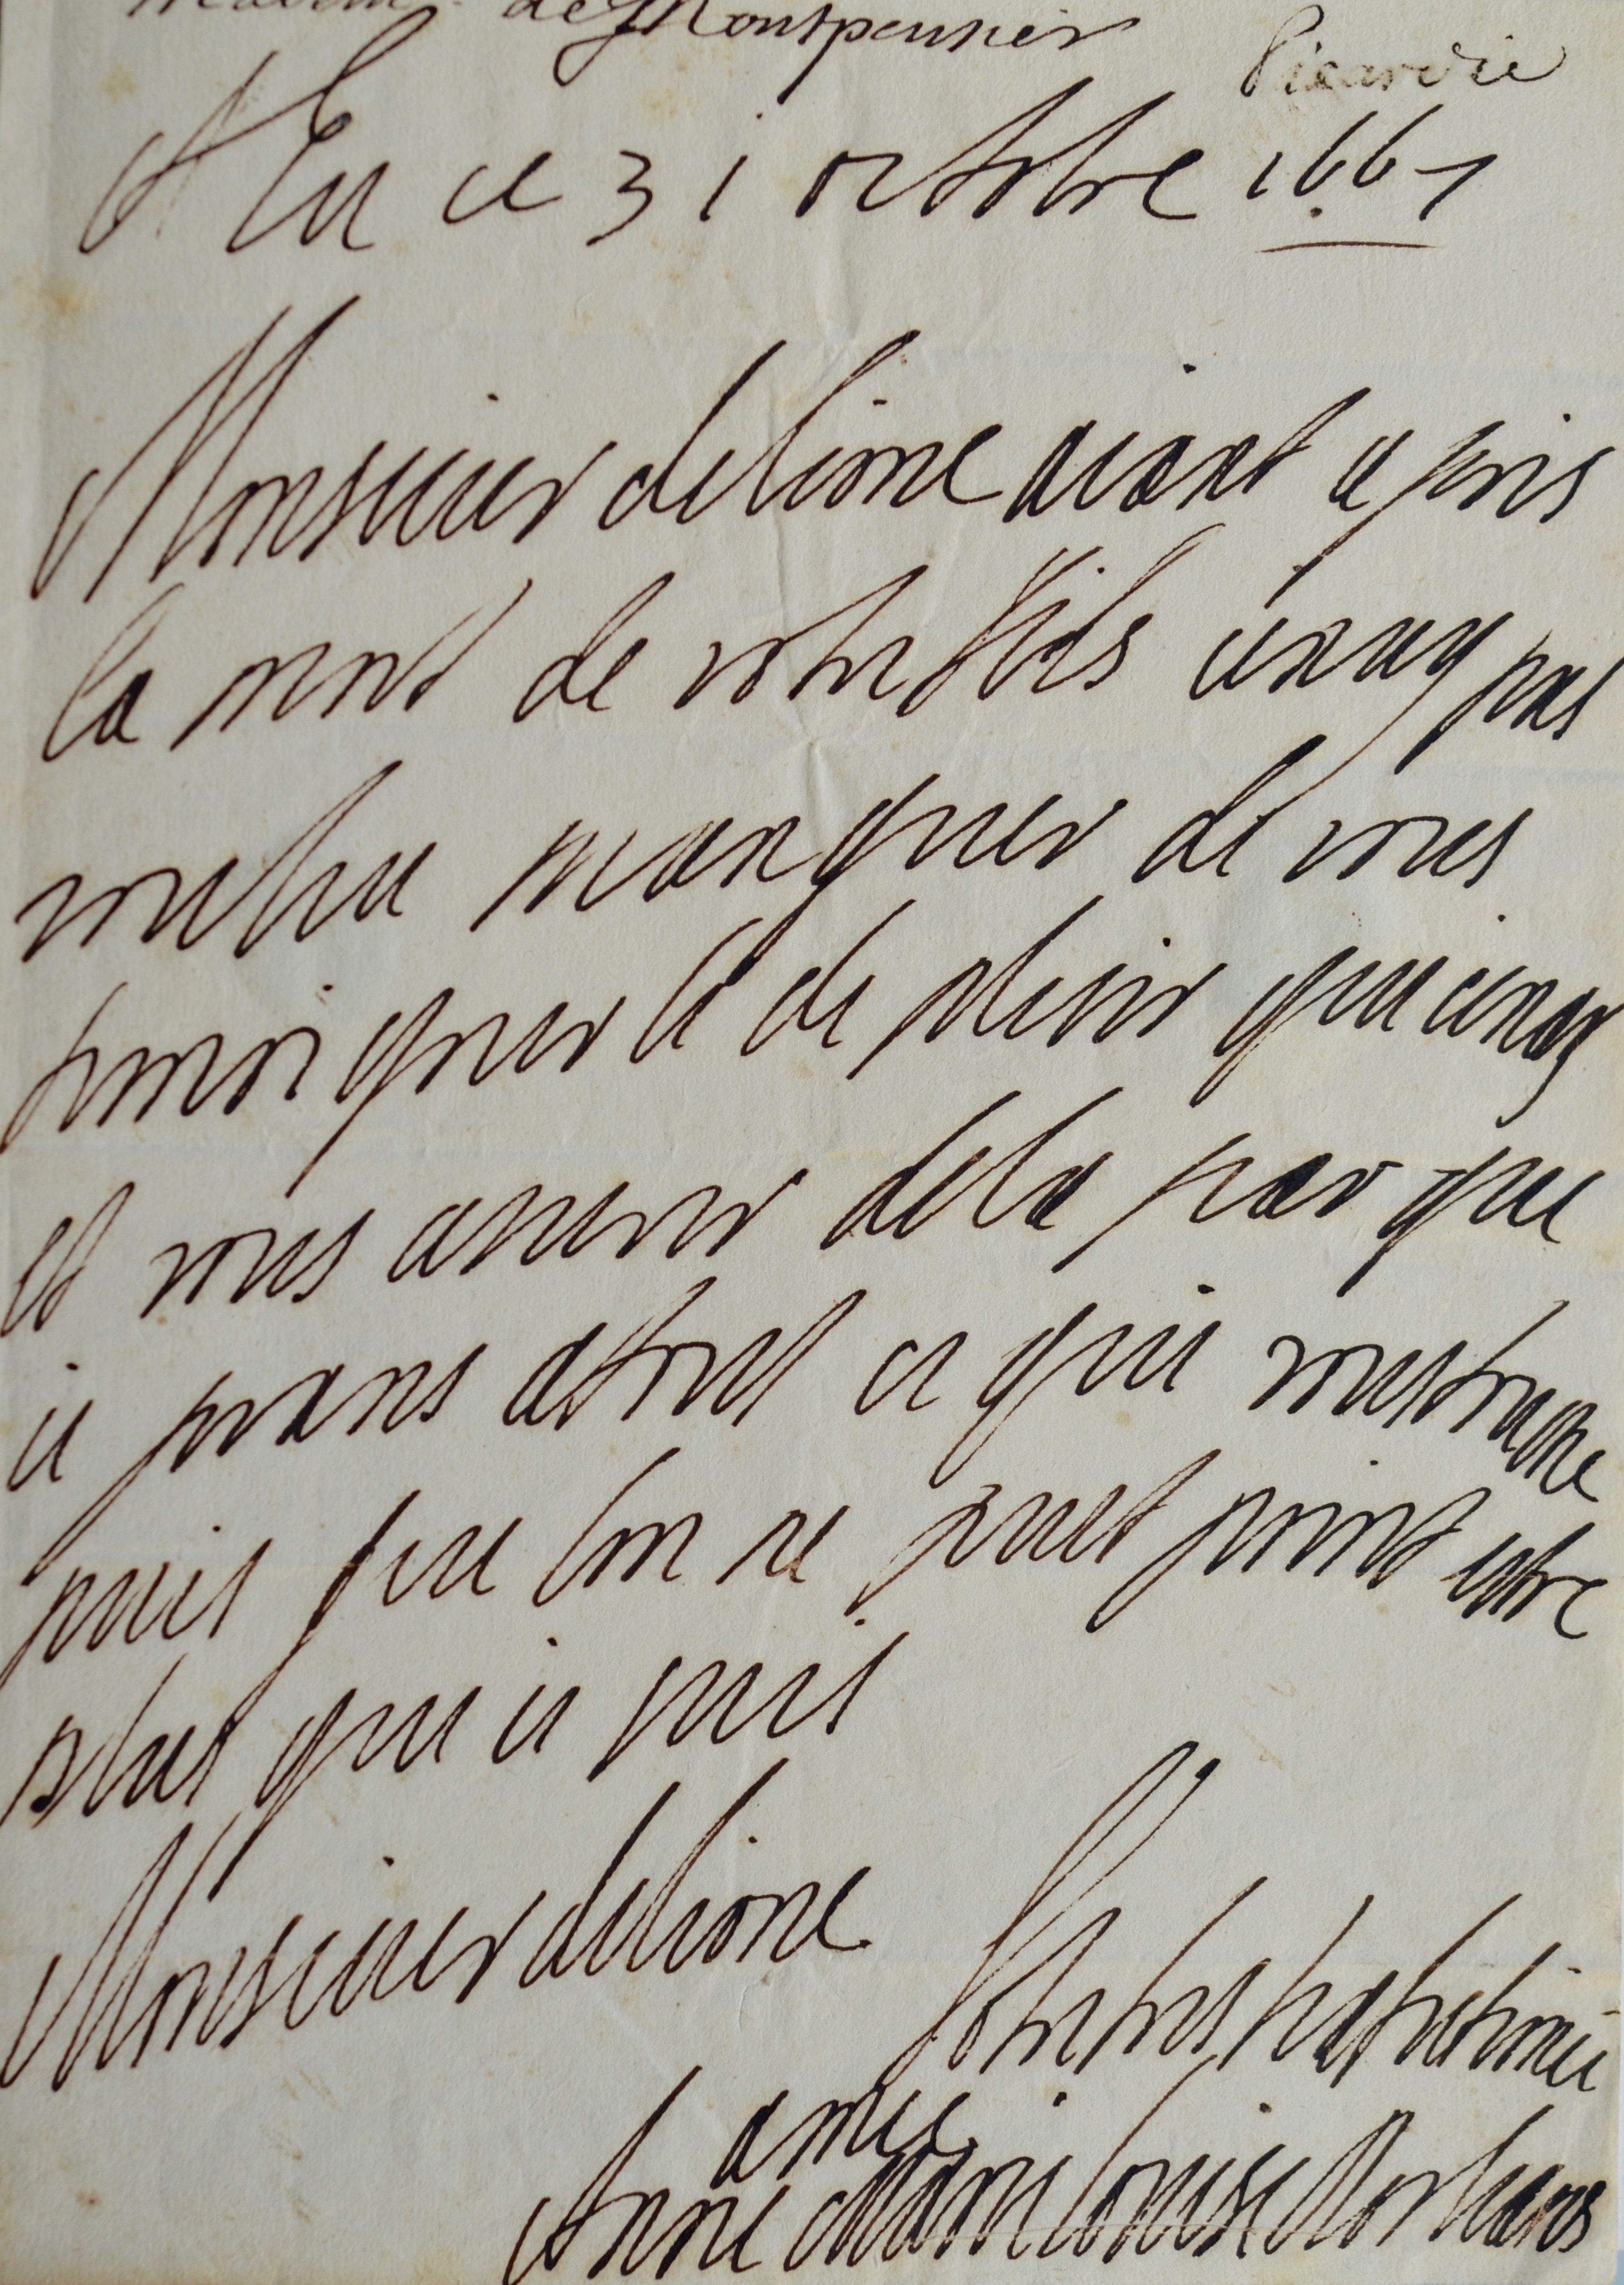 de Montpensier
Picardie
A Eu ce 31 octobre 1661
Monsieur delione aiant apris
la mort de votre fils ie nay pas
voulu manquer de vous
temoigner le de plesir que ienay
et vous asurer dela par que
ie prans a tout ce qui vous touche
puis que lon ne peut point estre
plus que ie suis
Monsieur delione
Votre tres afectionee
amie
Anne Marie Louise Dorleans